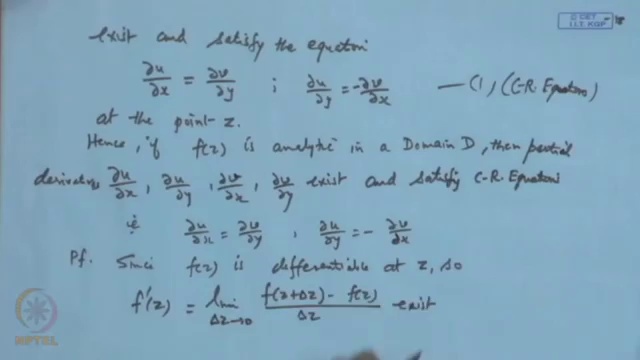 © CET
I.I.T. KGP
exist and satisfy the equation
∂u/∂x = ∂v/∂y ; ∂u/∂y = -∂v/∂x —(1) (C-R. Equations)
at the point z.
Hence, if f(z) is analytic in a Domain D, then partial
derivatives ∂u/∂x, ∂u/∂y, ∂v/∂x, ∂v/∂y exist and satisfy C-R. Equations
ie ∂u/∂x = ∂v/∂y , ∂u/∂y = - ∂v/∂x
Pf. Since f(z) is differentiable at z, so
f'(z) = lim Δz→0 f(z+Δz) - f(z) / Δz exist
NPTEL